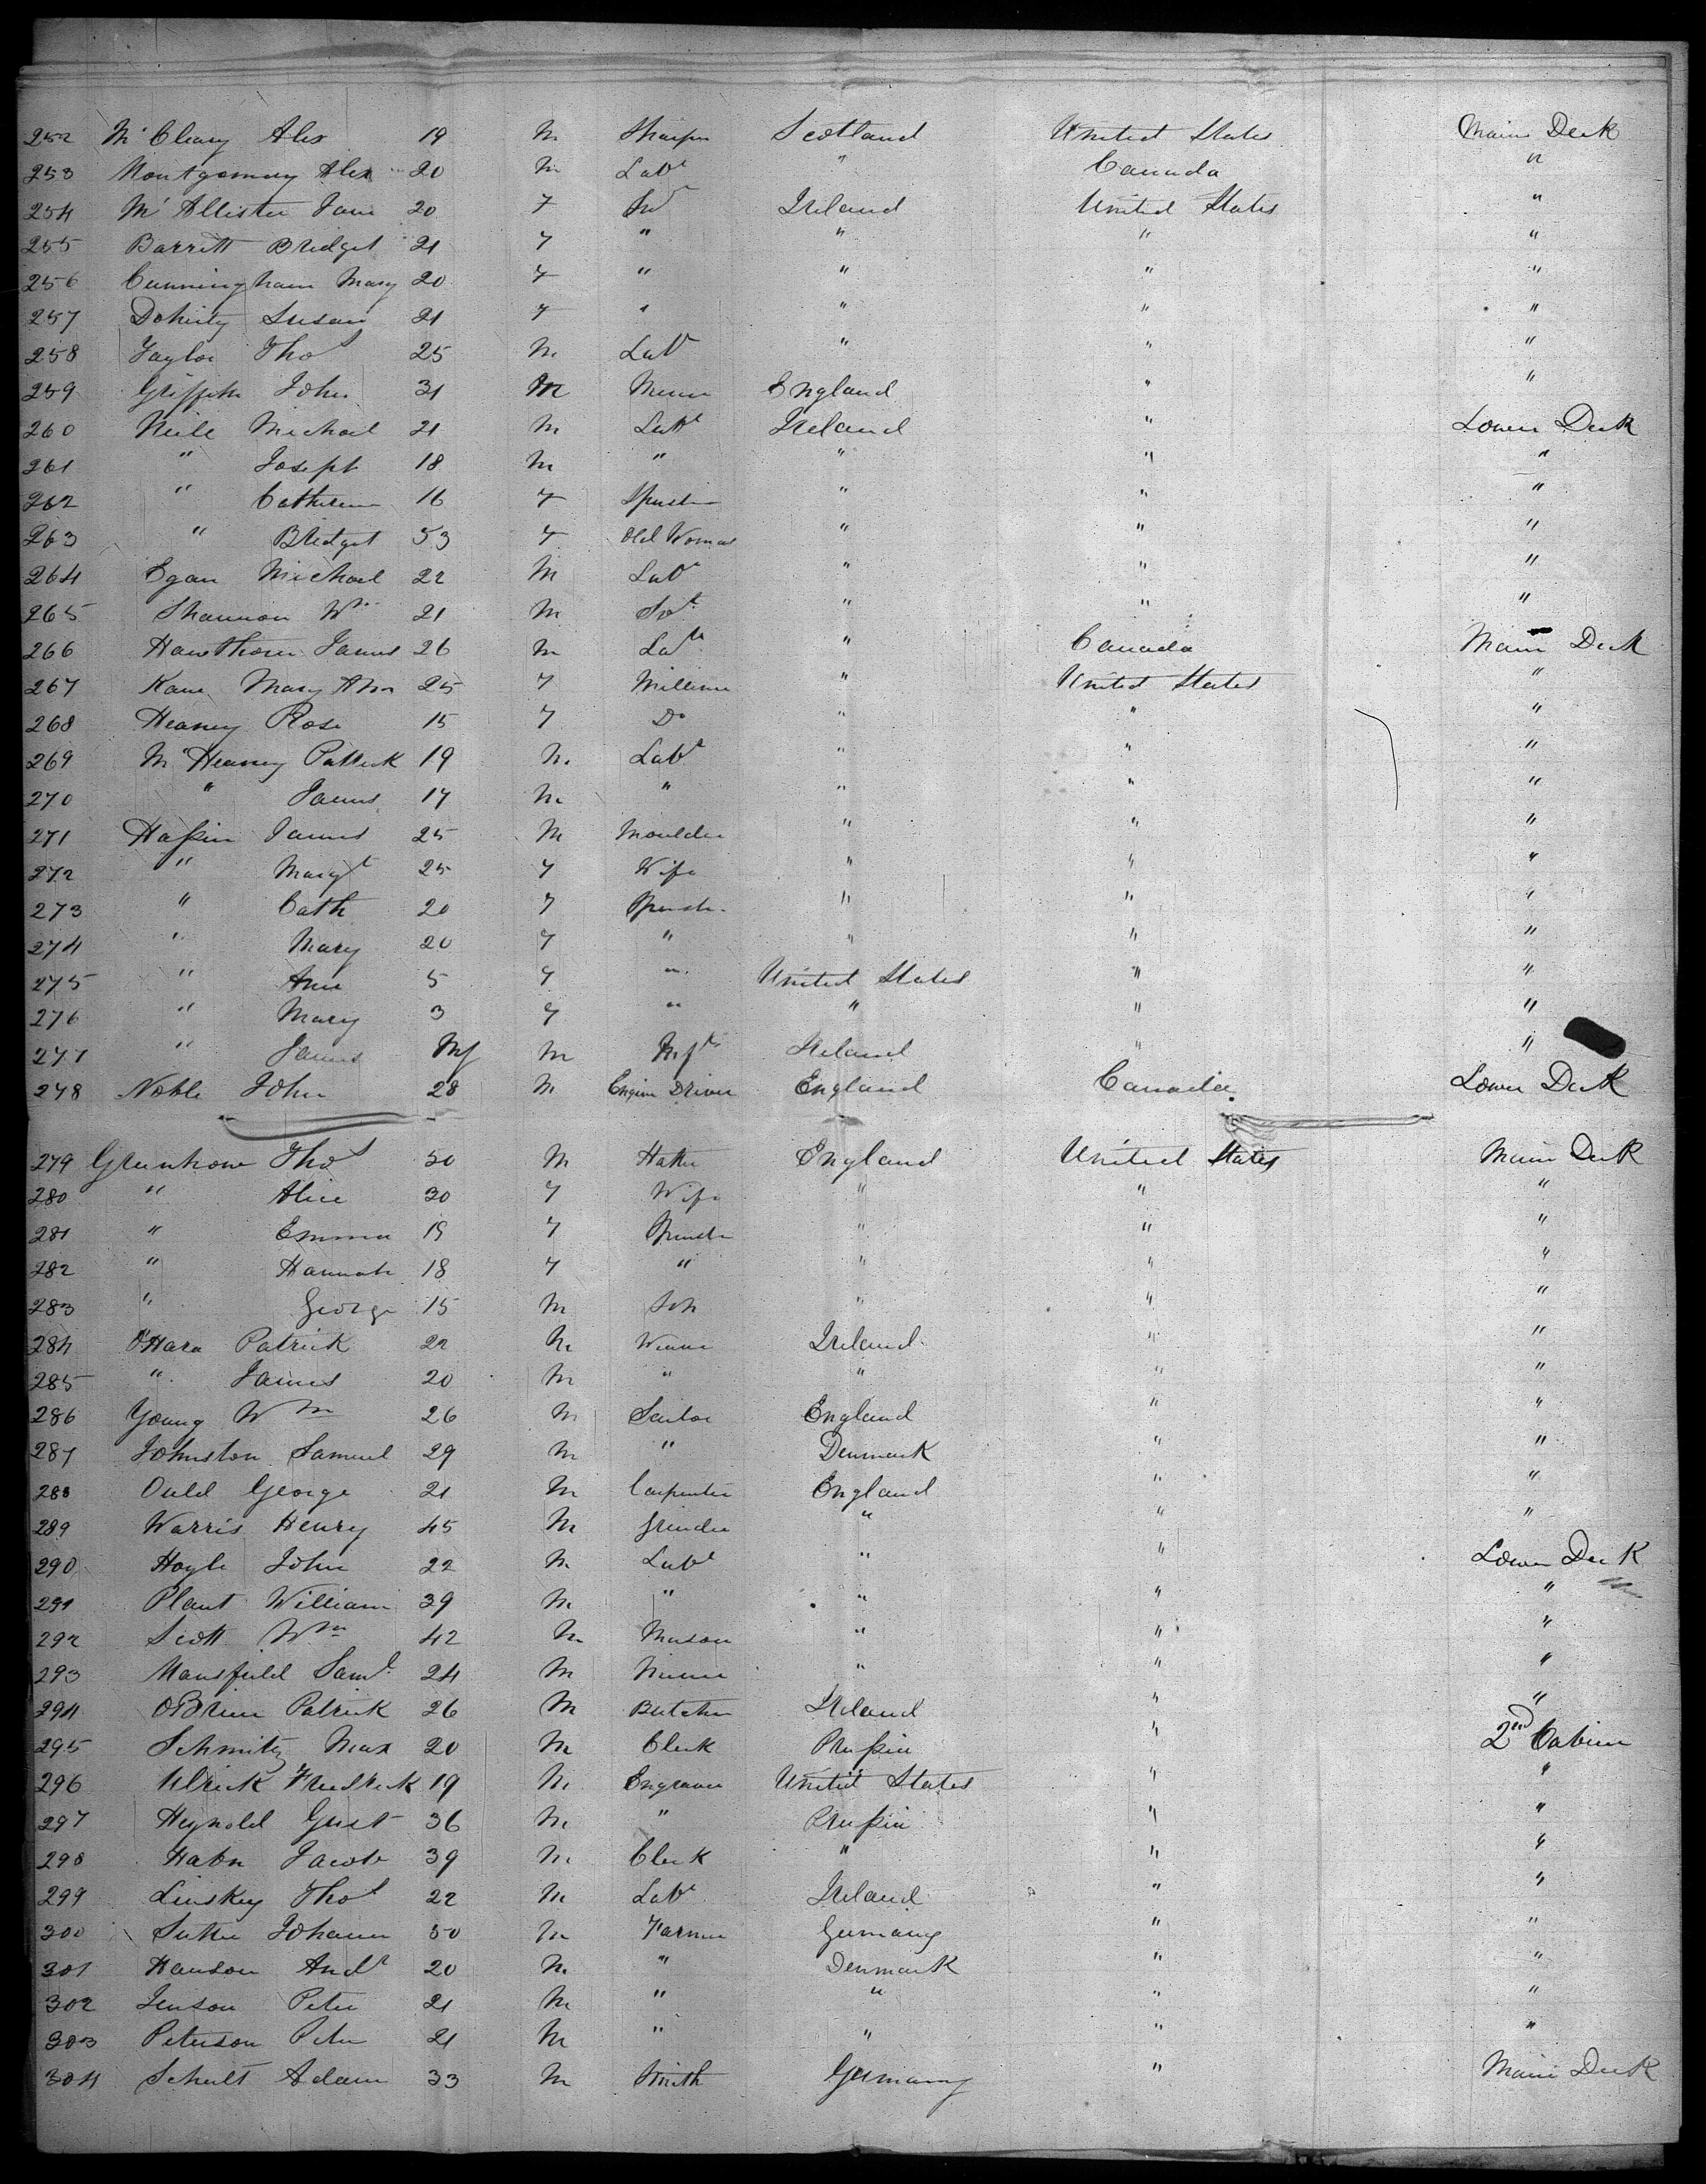 252 McCleary Alex 19 M Scotland United States Main Deck
253 Montgomery Alex 20 M Labr " Canada "
254 McAllister Jane 20 F Ireland United States "
255 Barrett Bridget 21 F " " " "
256 Cunningham Mary 20 F " " " "
257 Doherty Susan 21 F " " " "
258 Taylor Thos 25 M Labr " " "
259 Griffith John 31 M Miner England " "
260 Neile Michael 21 M Labr Ireland " Lower Deck
261 " Joseph 18 M " " " "
262 " Catherine 16 F Spinster " " "
263 " Bridget 53 F Old Woman " " "
264 Egan Michael 22 M Labr " " "
265 Shannon Wm 21 M " " "
266 Hawthorn James 26 M Labr " Canada Main Deck
267 Kane Mary Ann 25 F Milliner " United States "
268 Heaney Rose 15 F Do " " "
269 McHeaney Patrick 19 M Labr " " "
270 " James 17 M " " " "
271 Haßin James 25 M Moulder " " "
272 " Margt 25 F Wife " " "
273 " Cath 20 F Spinster " " "
274 " Mary 20 F " " " "
275 " Ann 5 F " United States " "
276 " Mary 3 F " " " "
277 " James Inf M Inft Ireland " "
278 Noble John 28 M Engine Driver England Canada Lower Deck
279 Greenhow Thos 50 M Hatter England United States Main Deck
280 " Alice 30 F Wife " " "
281 " Emma 19 F Spinster " " "
282 " Hannah 18 F " " " "
283 " George 15 M Son " " "
284 O'Hara Patrick 22 M Weaver Ireland " "
285 " James 20 M " " " "
286 Young Wm 26 M Sailor England " "
287 Johnston Samuel 29 M " Denmark " "
288 Ould George 21 M Carpenter England " "
289 Warris Henry 45 M Grinder " " "
290 Hoyle John 22 M Labr " " Lower Deck
291 Plant William 39 M " " " "
292 Scott Wm 42 M Mason " " "
293 Mansfield Saml 24 M Miner " " "
294 OBrien Patrick 26 M Butcher Ireland " "
295 Schmitz Max 20 M Clerk Prußia " 2nd Cabin
296 Ulrick Fredrick 19 M Engraver United States " "
297 Heynold Gust 36 M " Prußia " "
298 Hahn Jacob 39 M Clerk " " "
299 Linskey Thos 22 M Labr Ireland " "
300 Johann 50 M Farmer Germany " "
301 Hanson Andr 20 M " Denmark " "
302 Jenson Peter 21 M " " " "
303 Peterson Peter 21 M " " " "
304 Schult Adam 33 M Smith Germany " Main Deck